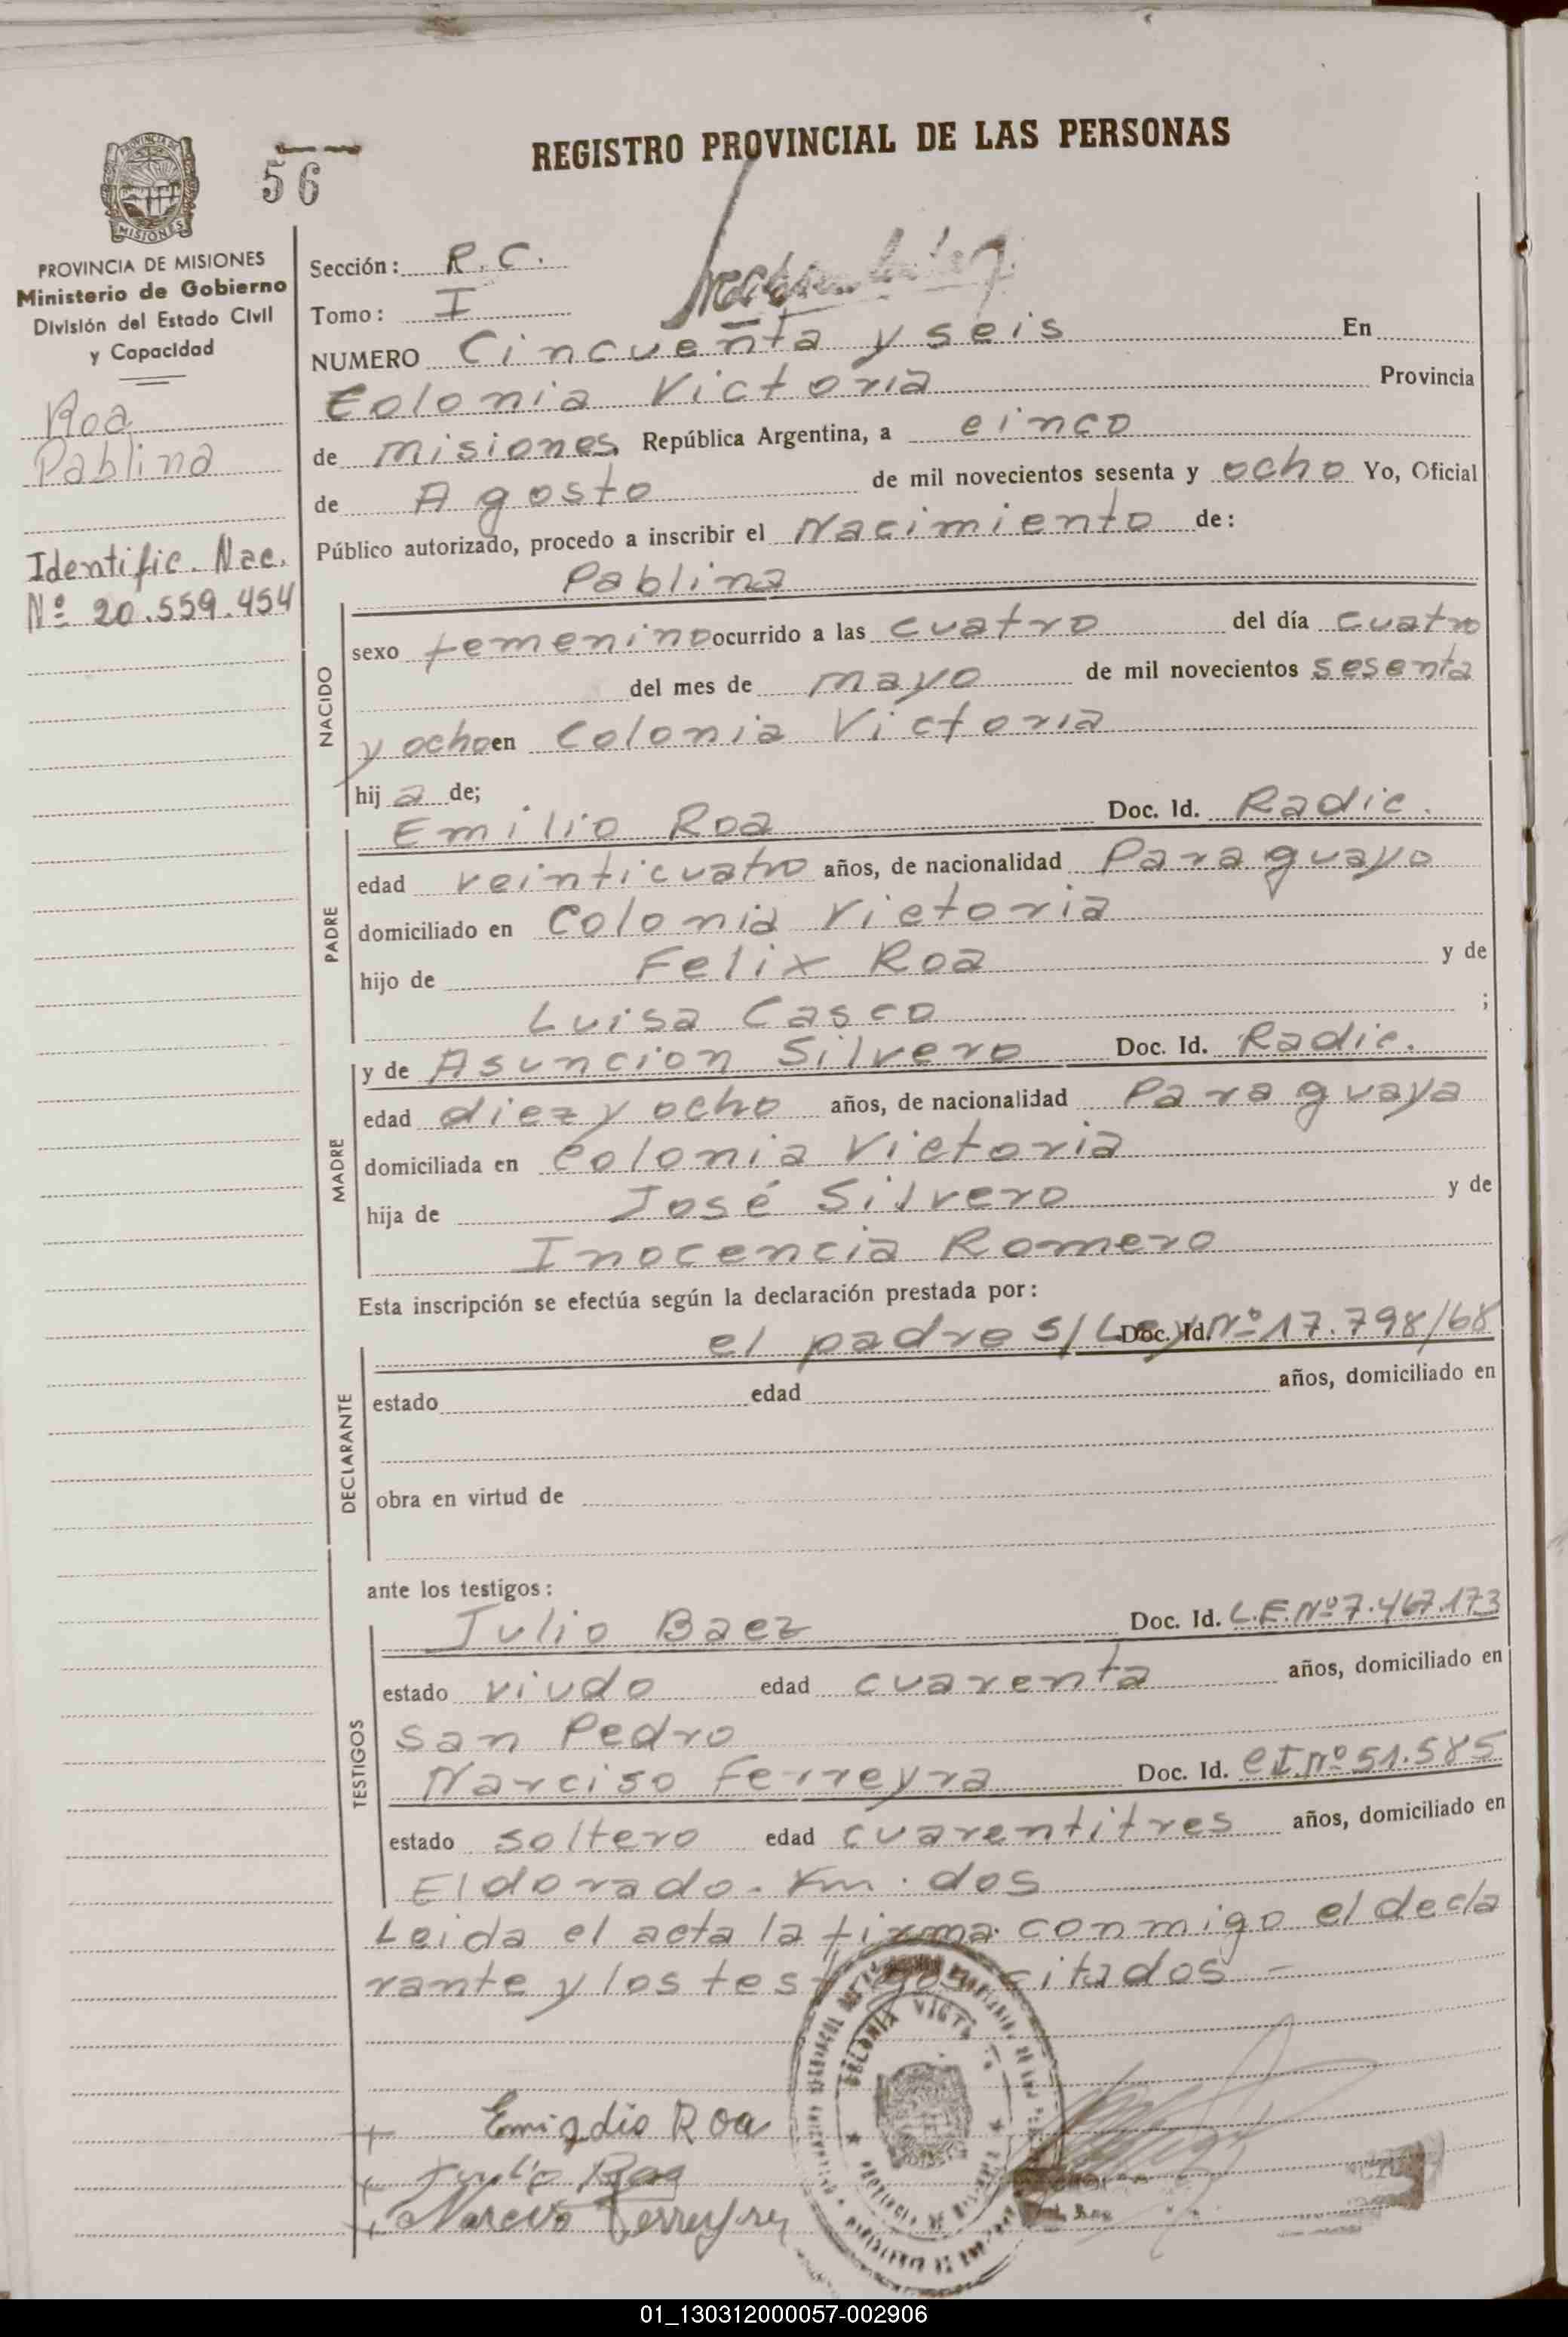 REGISTRO PROVINCIAL DE LAS PERSONAS
56
PROVINCIA DE MISIONES
Ministerio de Gobierno
División del Estado Civil
y Capacidad
Roa
Pablina
Identific. Nac.
Nº 20.559.454
Sección: R.C.
Tomo: I
NUMERO Cincuenta y seis En
Colonia Victoria Provincia
de misiones República Argentina, a cinco
de Agosto de mil novecientos sesenta y ocho Yo, Oficial
Público autorizado, procedo a inscribir el Nacimiento de:
Pablina
NACIDO
sexo femenino ocurrido a las cuatro del día cuatro
del mes de mayo de mil novecientos sesenta
y ocho en Colonia Victoria
hij a de;
PADRE
Emilio Roa Doc. Id. Radic.
edad veinticuatro años, de nacionalidad Paraguayo
domiciliado en Colonia Victoria
hijo de Felix Roa y de
Luisa Casco ;
MADRE
y de Asuncion Silvero Doc. Id. Radic.
edad diez y ocho años, de nacionalidad Paraguaya
domiciliada en Colonia Victoria
hija de José Silvero y de
Inocencia Romero
Esta inscripción se efectúa según la declaración prestada por:
DECLARANTE
el padre s/Ley Doc. Id. Nº 17.798/68
estado edad años, domiciliado en
obra en virtud de
ante los testigos:
TESTIGOS
Julio Baez Doc. Id. L.E.Nº 7.467.173
estado viudo edad cuarenta años, domiciliado en
San Pedro
Narciso Ferreyra Doc. Id. CI.Nº 51.585
estado soltero edad cuarentitres años, domiciliado en
Eldorado. Km. dos
Leida el acta la firma conmigo el decla
rante y los testigos citados -
COLONIA VICTORIA
+ Emigdio Roa
+ Julio Baez
+ Narciso Ferreyra
01_130312000057-002906